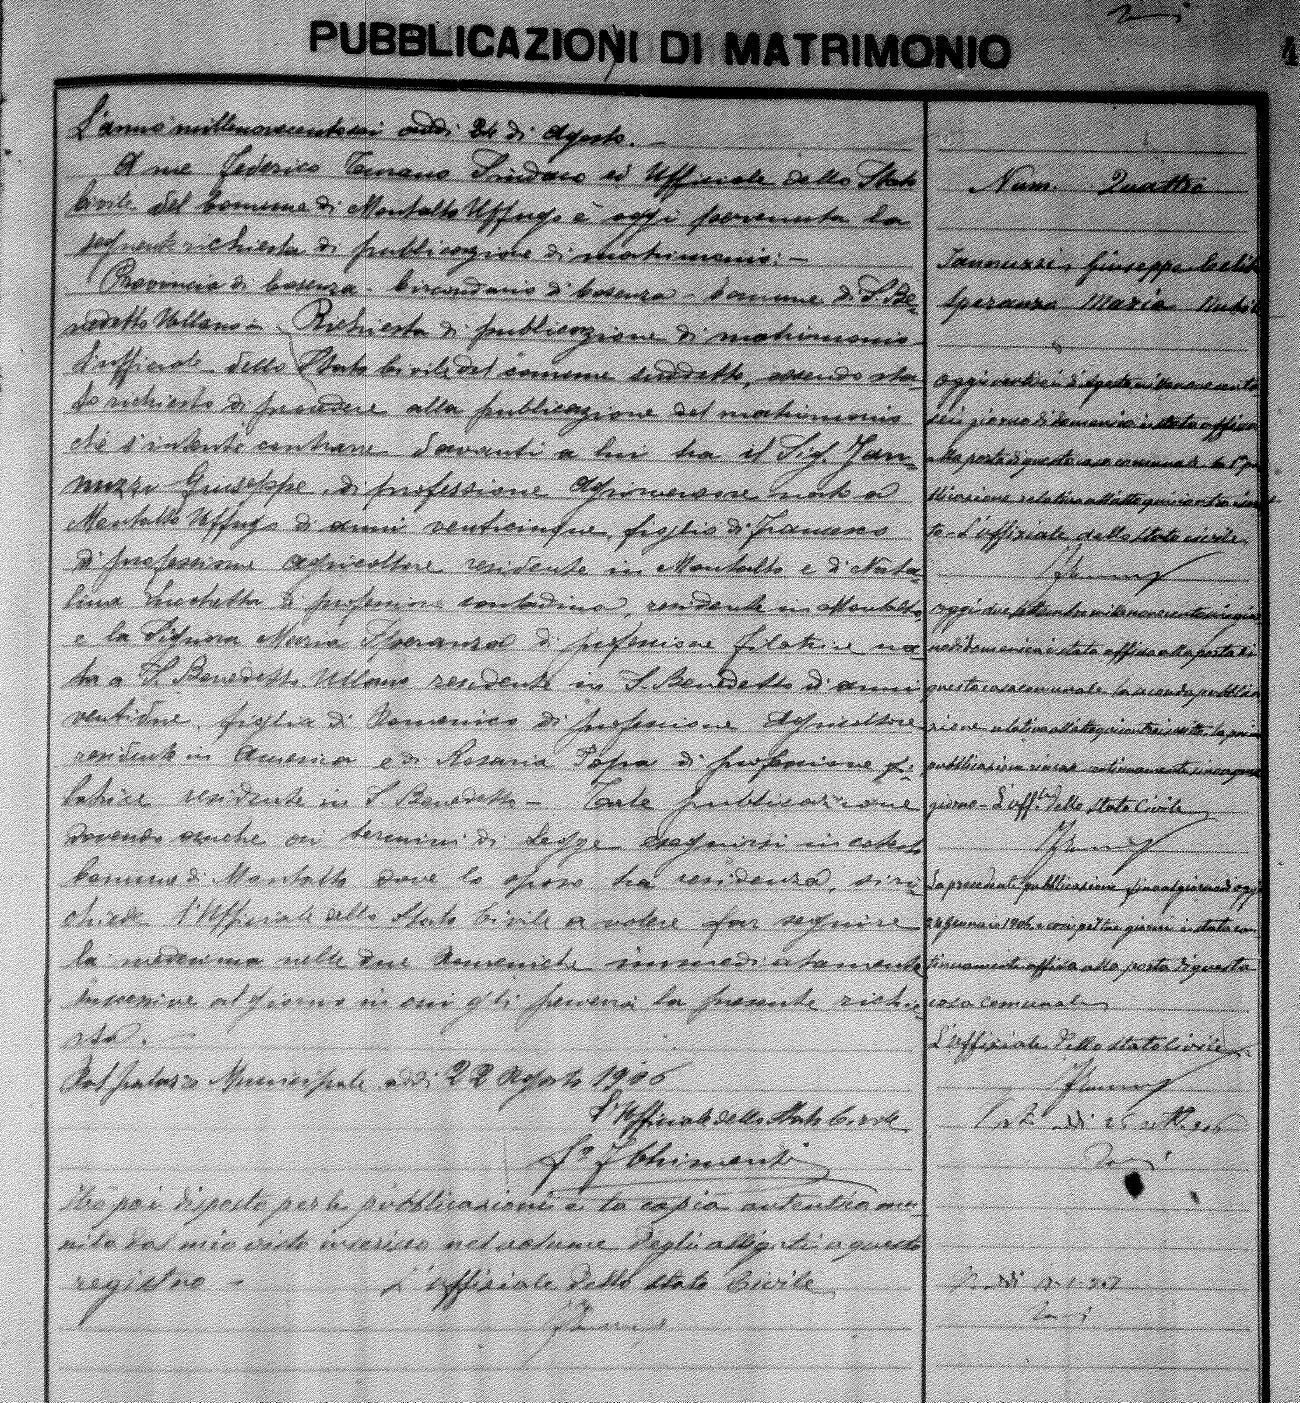 PUBBLICAZIONI DI MATRIMONIO
L'anno millenovecentosei addì 24 di Agosto.
A me Federico Sindaco ed Uffiziale dello Stato
Civile del Comune di Montalto Uffugo è oggi pervenuta la
seguente richiesta di pubblicazione di matrimonio: —
Provincia di Cosenza - Circondario di Cosenza - Comune di S. Be=
nedetto Ullano — Richiesta di pubblicazione di matrimonio
L'ufficiale dello Stato Civile del comune suddetto, essendo sta=
to richiesto di procedere alla pubblicazione del matrimonio
che s'intende contrarre davanti a lui tra il Sig. Jan=
nuzzi Giuseppe, di professione Agrimensore nato a
Montalto Uffugo di anni venticinque, figlio di Francesco
di professione agricoltore residente in Montalto e di Nata=
lina di professione contadina, residente in Montalto,
e la Signora Maria Speranza di professione filatrice na=
ta a S. Benedetto Ullano residente in S. Benedetto di anni
ventidue, figlia di Domenico di professione Agricoltore
residente in America e di Rosaria Papa di professione fi=
latrice residente in S. Benedetto — Tale pubblicazione
dovendo anche ai termini di Legge eseguirsi in codesto
Comune di Montalto dove lo sposo ha residenza, si ri
chiede l'Ufficiale dello Stato Civile a volere far seguire
la medesima nelle due Domeniche immediatamente
successive al giorno in cui gli perverrà la presente richie
sta. —
Dal palazzo Municipale addì 22 Agosto 1906
L'Ufficiale dello Stato Civile
F.o F Chimenti
poi disposto per le pubblicazioni e la copia autentica mu=
nita dal mio visto inserisco nel volume degli allegati a questo
registro — L'uffiziale dello stato Civile
Num. Quattro
Jannuzzi, Giuseppe Celibe
Speranza Maria Nubile
Oggi ventisei di Agosto millenovecento
sei giorno di domenica è stata affissa
alla porta di questa casa comunale la 1ª pu
blicazione relativa all'atto qui contro inscrit
to - L'uffiziale dello stato civile
Oggi due settembre millenovecentosei gior
no di domenica è stata affissa alla porta di
questa casa comunale la seconda pubblica
zione relativa all'atto qui contro inscritto la prima
pubblicazione
giorno - L'uff.le dello stato Civile
La precedente pubblicazione fino al giorno di oggi
e così pel tre giorni è stata con
tinuamente affissa alla porta di questa
casa comunale
L'uffiziale dello stato Civile